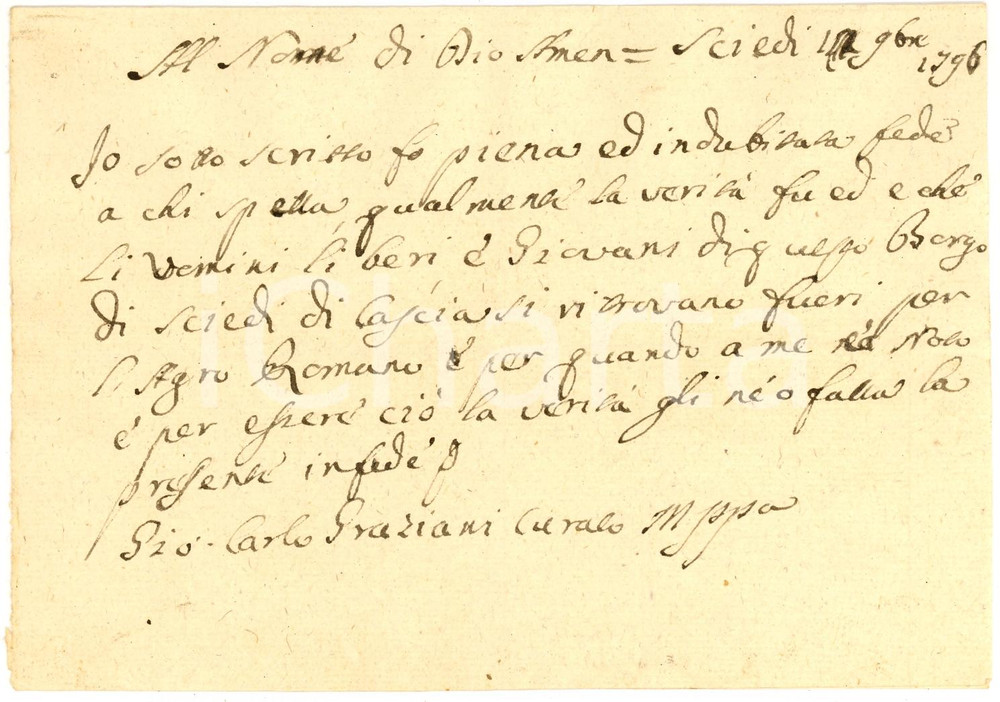 Al Nome di Dio Amen = Sciedi 9bre 1796
Io sotto scritto fo piena ed indubitata fede
a chi spetta qualmente la verità fu ed e che
li uomini liberi è Giovani di questo Borgo
di Sciedi di Cascia si ritrovano fueri per
l'Agro Romano è per quando a me né Noto
è per essere ciò la verità gli né o fatta la
presente in fede
Gio. Carlo Graziani Curato Mppa
iCharta